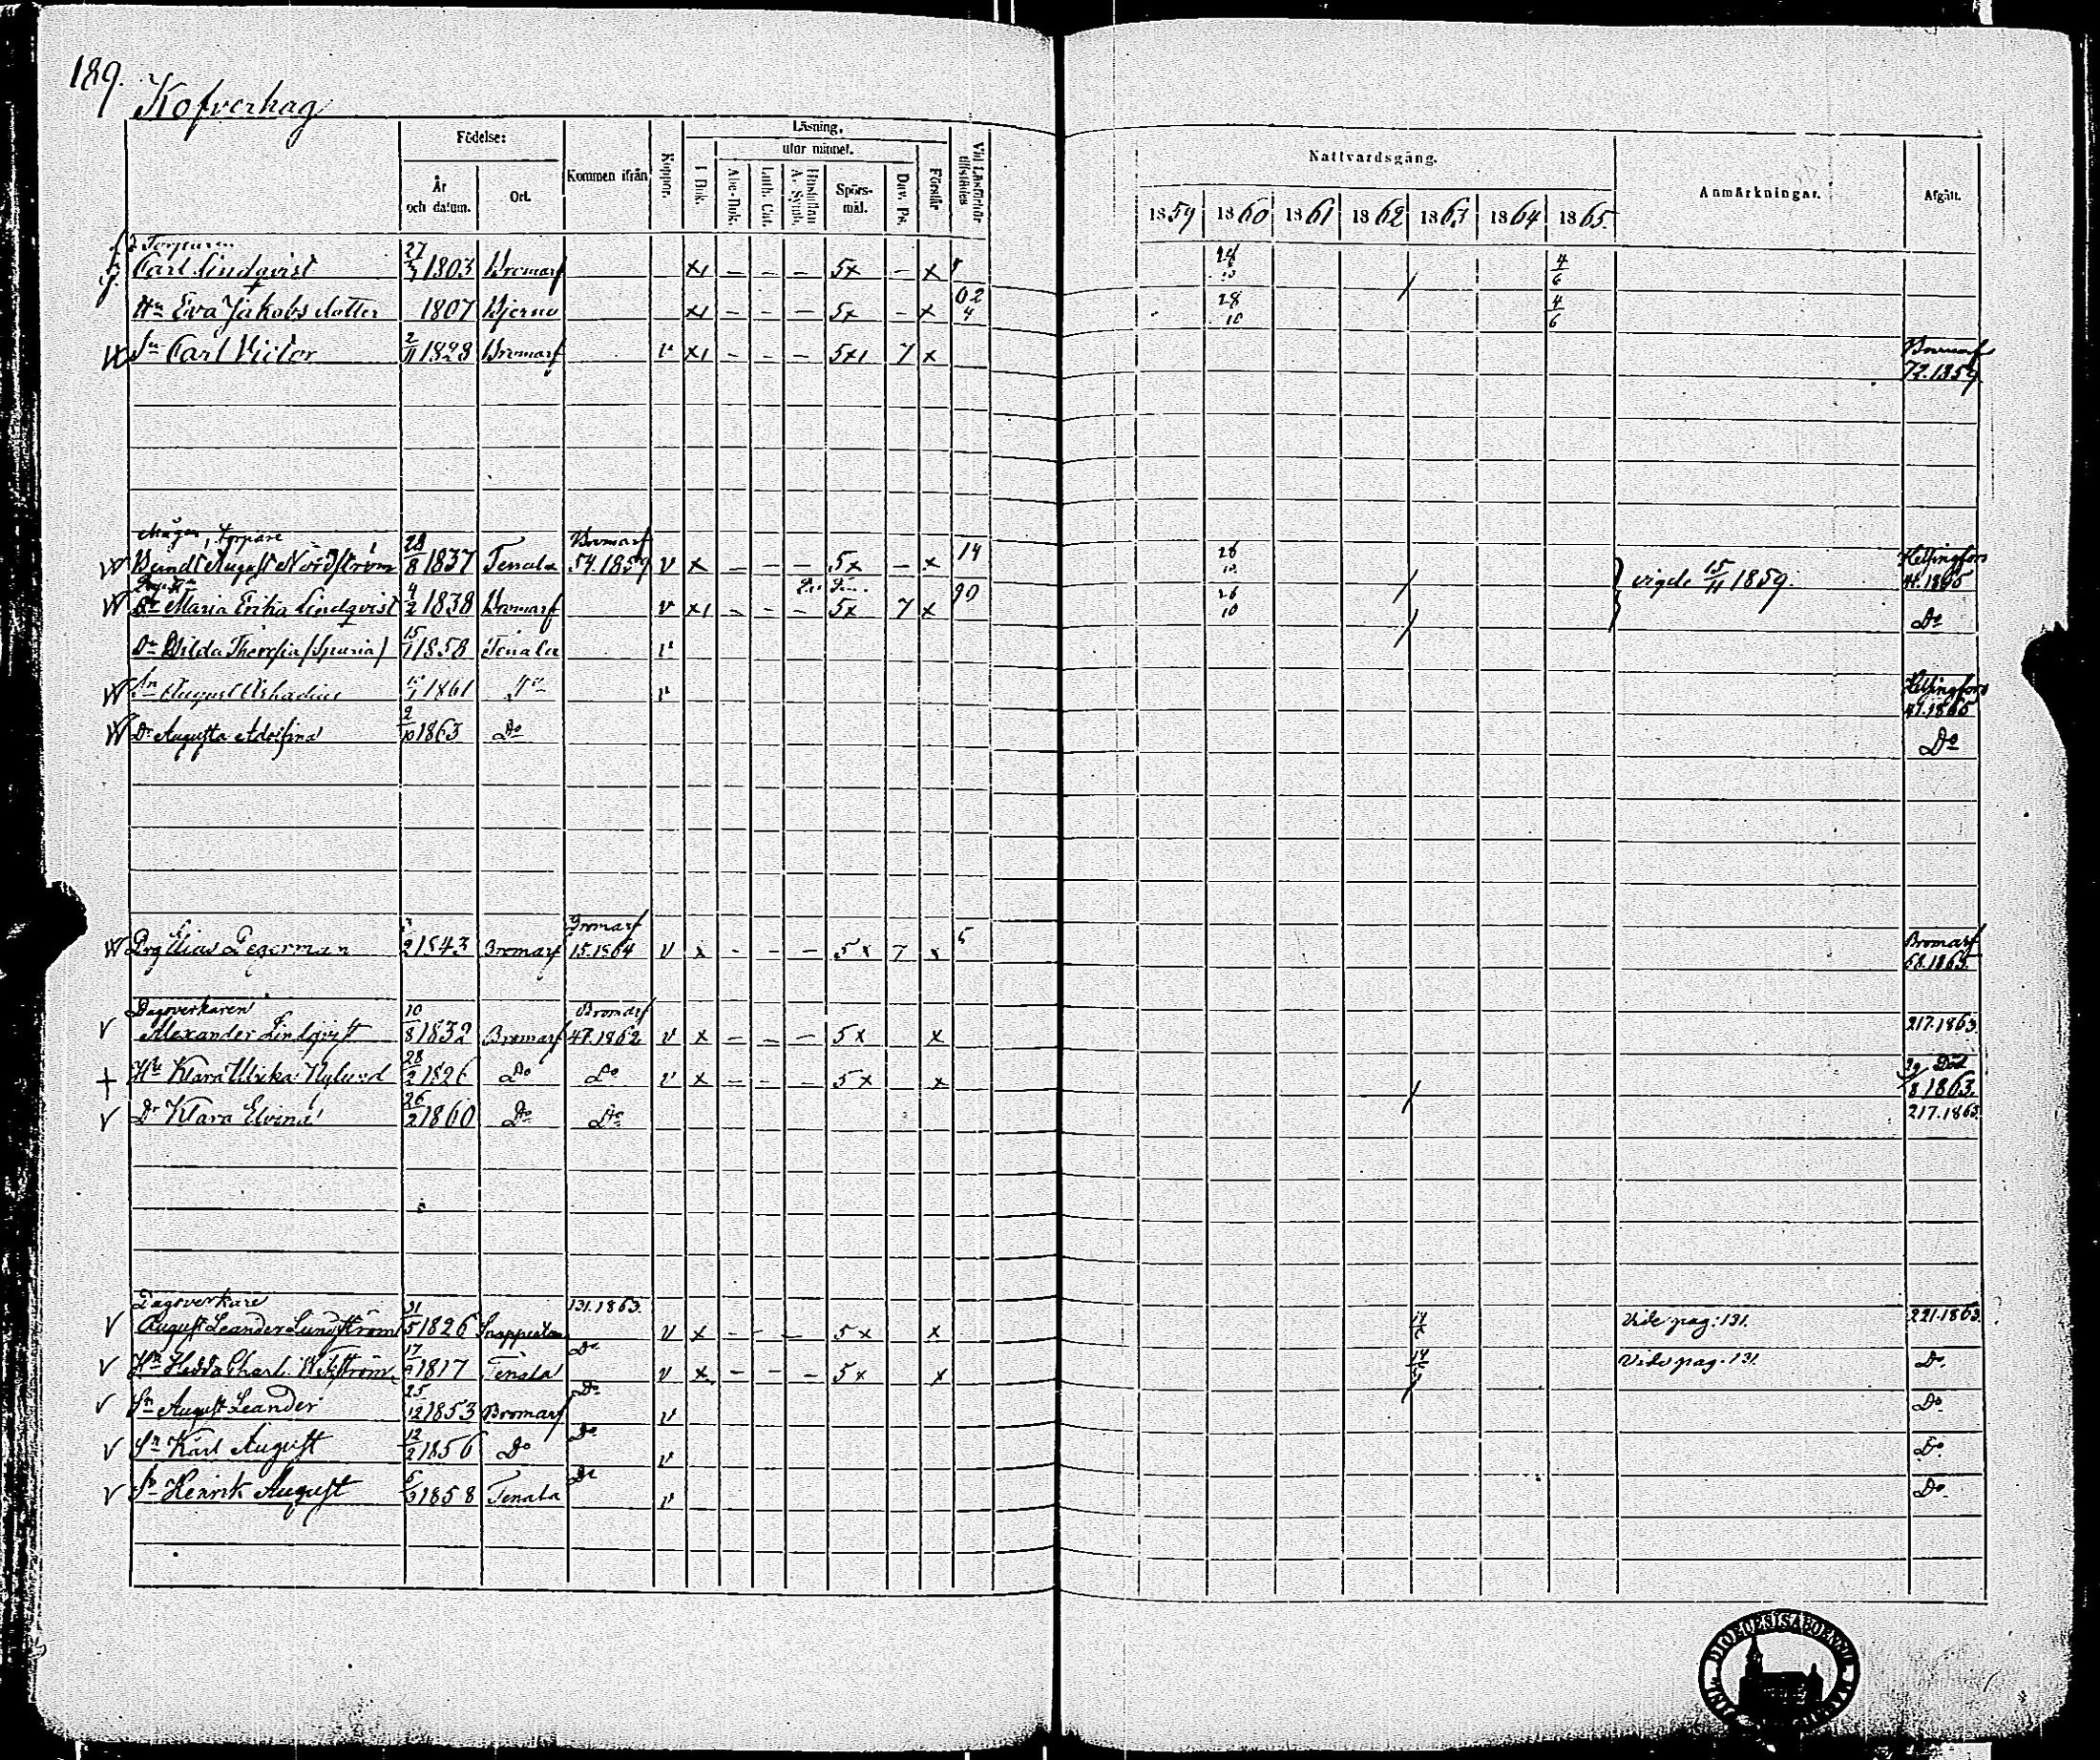 189.
Kofverhag
Födelse:
År och datum.
Ort.
Kommen ifrån
Koppor.
Läsning.
I Bok.
utur minnet.
Abc-Bok.
Luth. Cat.
Hustaflan A. Symb.
Spörs-mål.
Dav. Ps.
Förstår
Vid Läsförhör tillstädes
Nattvardsgång.
1859 1860 1861 1862 1863 1864 1865.
Anmärkningar.
Afgått.
Torparen
Carl Lindqvist 27/3 1803 Bromarf x1 – – – 5x – x 4/6
Hu Eva Jakobsdotter 1807 Bjerno x1 – – – 5x – x 28/10 4/6
Sn Carl Victor 2/11 1828 Bromarf v x1 – – – 5x1 7 x Bromarf 72.1859
Mågen, Torpare Bromarf
Berndt August Nordström 28/8 1837 Tenala 54.1859 v x – – – 5x – x 14 vigde 15/11 1859. Helsingfors 41.1865
Maria Erika Lindqvist 4/2 1838 Bromarf v x1 – – – 5x 7 x 90 26/10 Do
Dr Hilda Theresia (Spuria) 15/1 1858 Tenala v
Sn August Arkadius 1861 Do v Helsingfors 41.1865
Dr Augusta Adolfina 2/10 1863 Do Do
Bromarf
Drg Elias Segerman 1843 Bromarf 15.1864 v x – – – 5x 7 x 5 Bromarf 68.1865.
Dagsverkaren Bromarf
Alexander Lindqvist 10/8 1832 Bromarf 47.1862 v x – – – 5x x 217.1863
Hu Klara Ulrika Nylund 28/2 1826 Do Do v x – – – 5x x Död 29/8 1863.
Dr Klara Elvina 26/2 1860 Do Do 217.1863.
Dagsverkare 131.1863.
August Leander Lundström 31/5 1826 v x – – – 5x x Vide pag: 131. 221.1863.
Hu Hedda Charl. Wikström 1817 Tenala Do v x – – – 5x x Vide pag. 131. Do
Sn August Leander 25/12 1853 Bromarf Do v Do
Sn Karl August 12/2 1856 Do Do v Do
Sn Henrik August 1858 Tenala Do v Do
DIOECESIS ABOENSIS